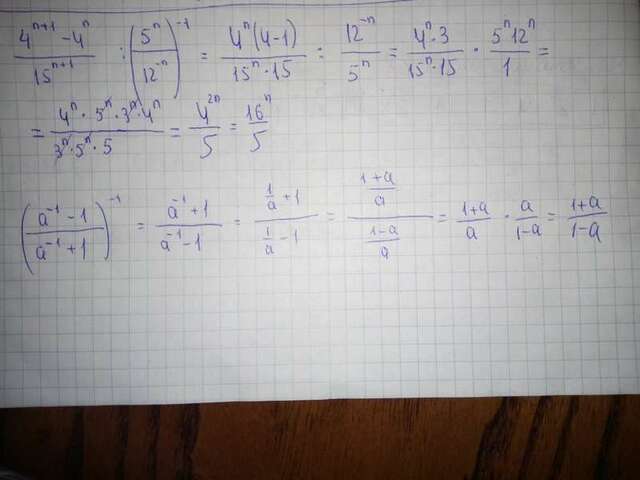 (4^(n+1) - 4^n)/15^(n+1) : (5^n/12^(-n))^(-1) = 4^n(4-1)/(15^n·15) : 12^(-n)/5^n = 4^n·3/(15^n·15) · 5^n 12^n/1 =
= 4^n·5^n·3^n·4^n/(3^n·5^n·5) = 4^(2n)/5 = 16^n/5
((a^(-1) - 1)/(a^(-1) + 1))^(-1) = (a^(-1) + 1)/(a^(-1) - 1) = (1/a + 1)/(1/a - 1) = ((1+a)/a)/((1-a)/a) = (1+a)/a · a/(1-a) = (1+a)/(1-a)